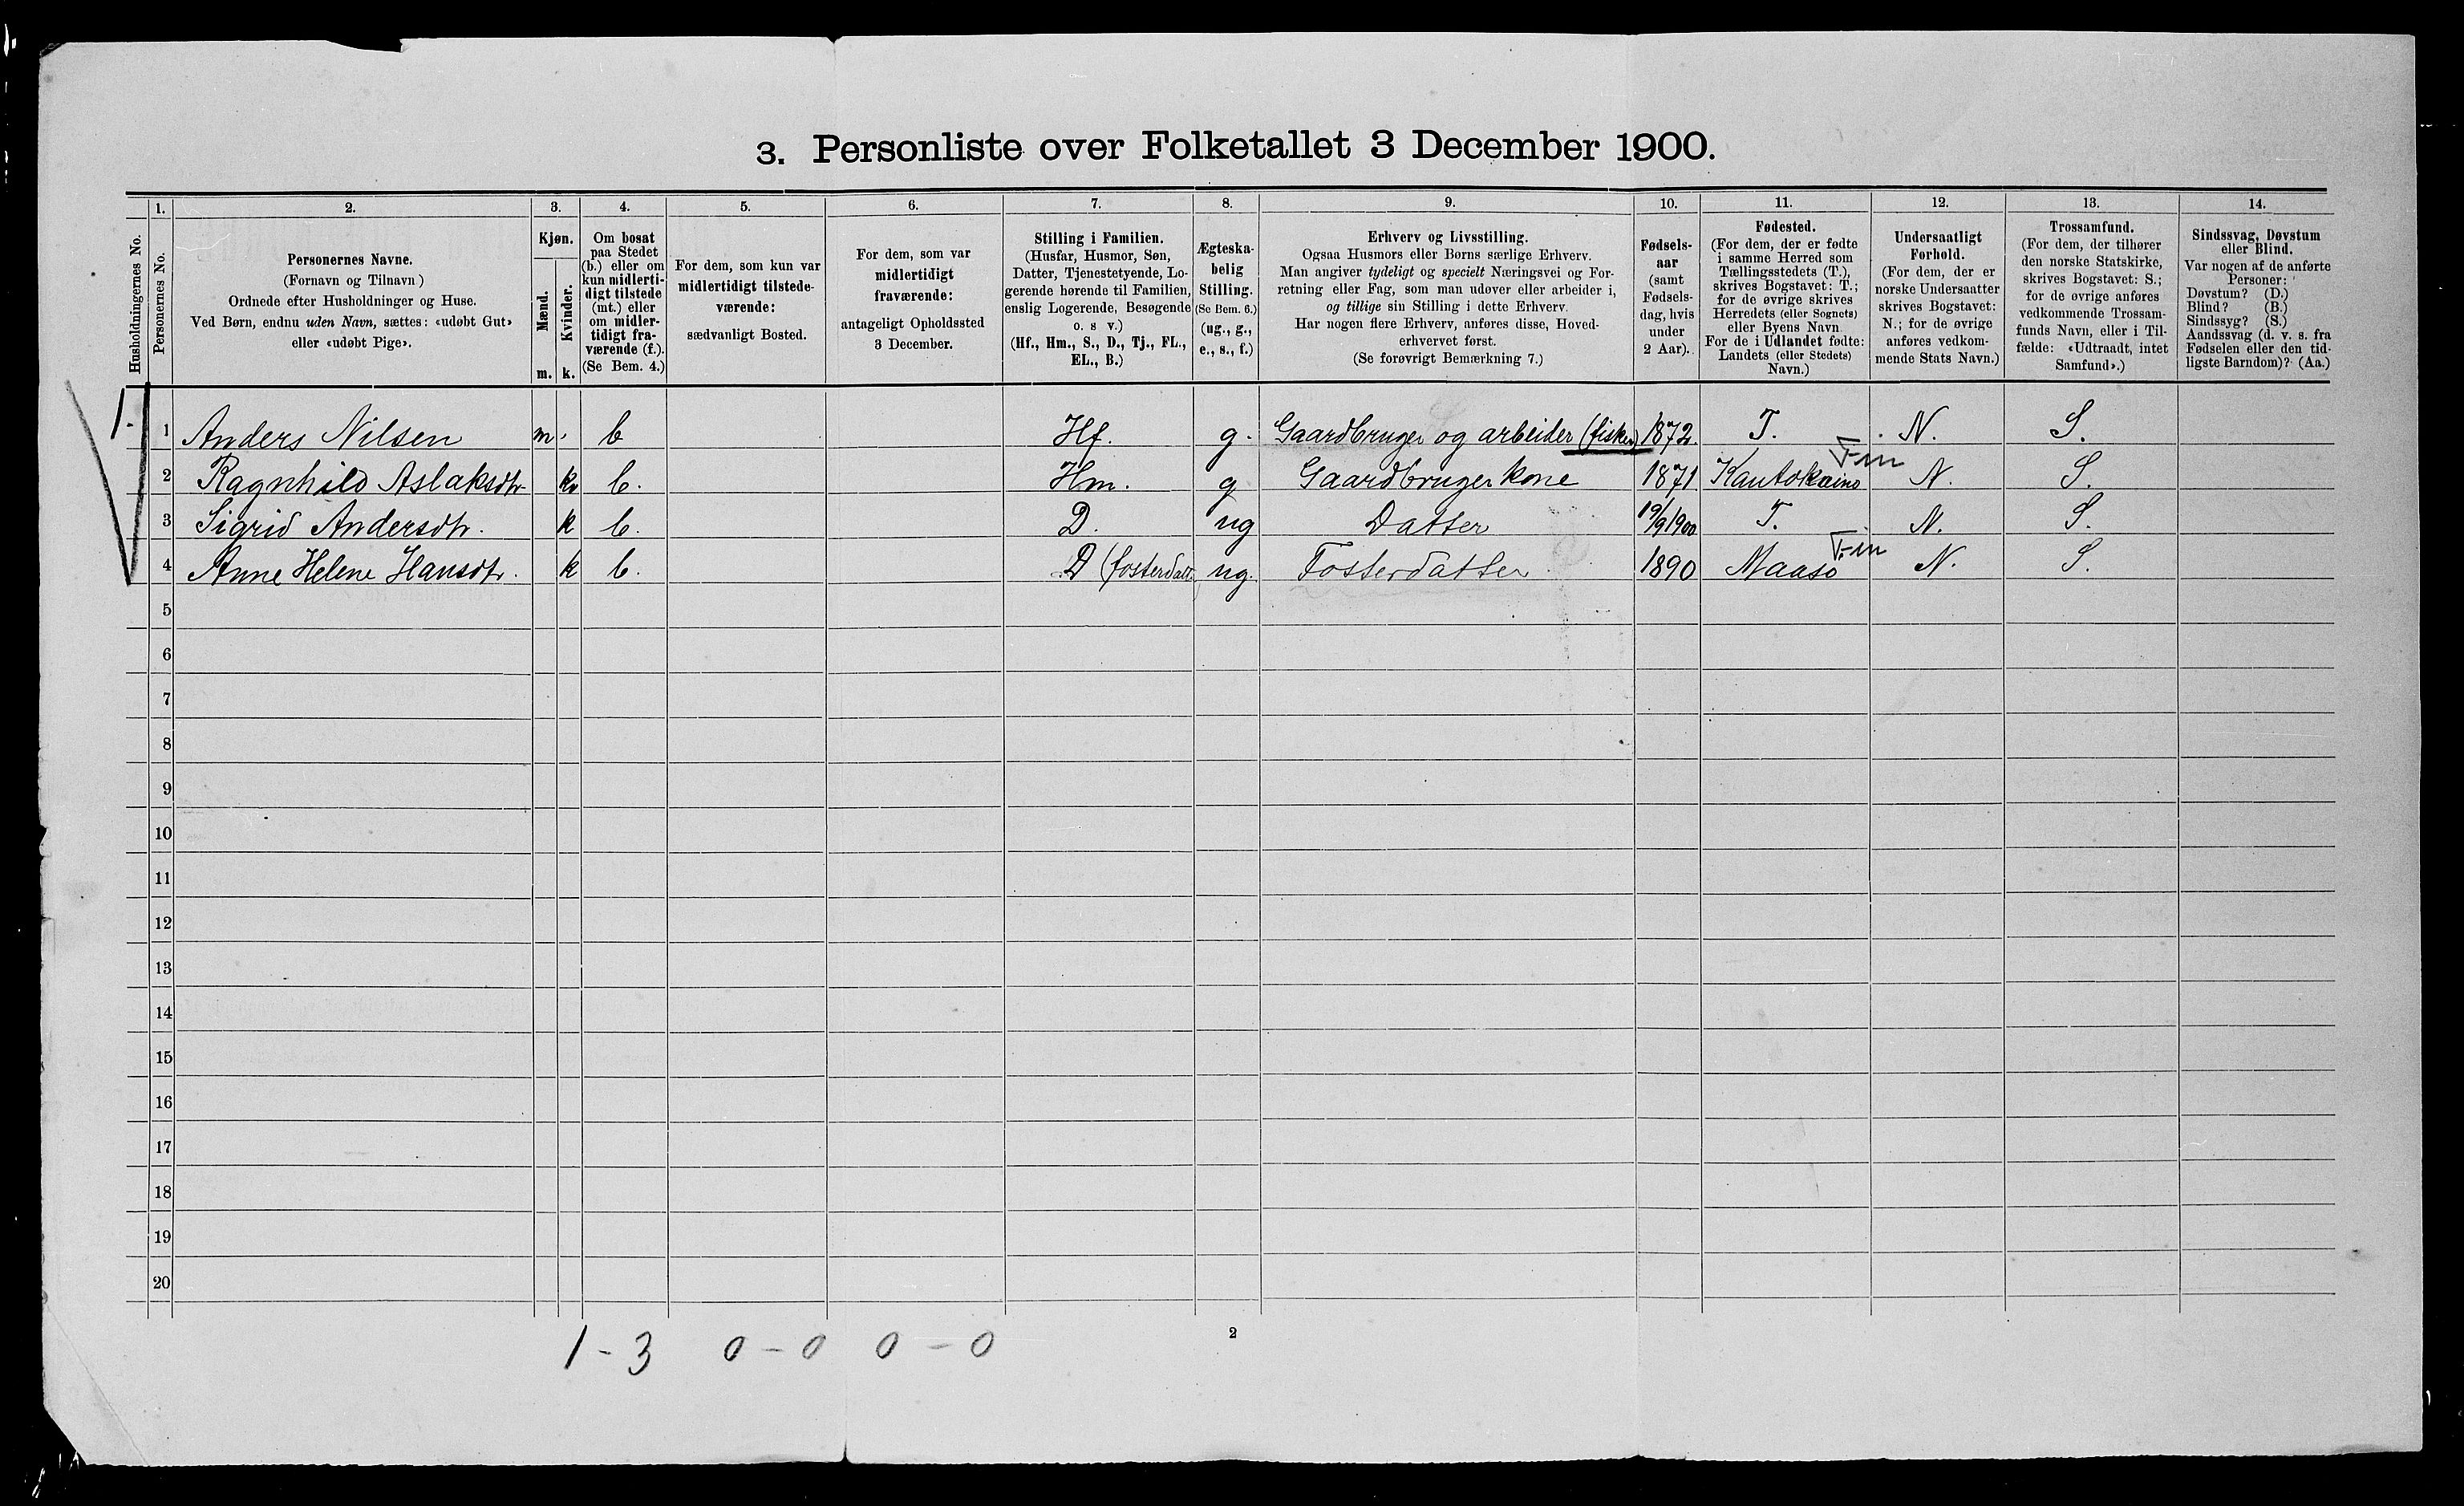 3. Personliste over Folketallet 3 December 1900.
1. 2. 3. 4. 5. 6. 7. 8. 9. 10. 11. 12. 13. 14.
Husholdningernes No.
Personernes No.
Personernes Navne.
(Fornavn og Tilnavn)
Ordnede efter Husholdninger og Huse.
Ved Børn, endnu uden Navn, sættes: «udøbt Gut»
eller «udøbt Pige».
Kjøn.
Mænd.
Kvinder.
m. k.
Om bosat
paa Stedet
(b.) eller om
kun midlerti-
digt tilstede
(mt.) eller
om midler-
tidigt fra-
værende (f.).
(Se Bem. 4.)
For dem, som kun var
midlertidigt tilstede-
værende:
sædvanligt Bosted.
For dem, som var
midlertidigt
fraværende:
antageligt Opholdssted
3 December.
Stilling i Familien.
(Husfar, Husmor, Søn,
Datter, Tjenestetyende, Lo-
gerende hørende til Familien,
enslig Logerende, Besøgende
o. s v.)
(Hf., Hm., S., D., Tj., FL.,
EL., B.)
Ægteska-
belig
Stilling.
(Se Bem. 6.)
(ug., g.,
e., s., f.)
Erhverv og Livsstilling.
Ogsaa Husmors eller Børns særlige Erhverv.
Man angiver tydeligt og specielt Næringsvei og For-
retning eller Fag, som man udøver eller arbeider i,
og tillige sin Stilling i dette Erhverv.
Har nogen flere Erhverv, anføres disse, Hoved-
erhvervet først.
(Se forøvrigt Bemærkning 7.)
Fødsels-
aar
(samt
Fødsels-
dag, hvis
under
2 Aar).
Fødested.
(For dem, der er fødte
i samme Herred som
Tællingsstedets (T.),
skrives Bogstavet: T.;
for de øvrige skrives
Herredets (eller Sognets)
eller Byens Navn
For de i Udlandet fødte:
Landets (eller Stedets)
Navn.)
Undersaatligt
Forhold.
(For dem, der er
norske Undersaatter
skrives Bogstavet:
N.; for de øvrige
anføres vedkom-
mende Stats Navn.)
Trossamfund.
(For dem, der tilhører
den norske Statskirke,
skrives Bogstavet: S.;
for de øvrige anføres
vedkommende Trossam-
funds Navn, eller i Til-
fælde: «Udtraadt, intet
Samfund».)
Sindssvag, Døvstum
eller Blind.
Var nogen af de anførte
Personer:
Døvstum? (D.)
Blind? (B.)
Sindssyg? (S.)
Aandssvag (d. v. s. fra
Fødselen eller den tid-
ligste Barndom)? (Aa.)
1. 1 Anders Nilsen m. b Hf. g. Gaardbruger og arbeider (fisker) 1872 T. N. S.
Fin
2 Ragnhild Aslaksdtr k b. Hm. g Gaardbrugerkone 1871 Kautokeino N. S.
3 Sigrid Andersdtr. k b. D. ug Datter 19/9 1900 T. N. S.
Fin
4 Anne Helene Hansdtr. k b. D (fosterdatt. ug. Fosterdatter 1890 Maasø N. S.
5
6
7
8
9
10
11
12
13
14
15
16
17
18
19
20
1 - 3 0 - 0 0 - 0
2